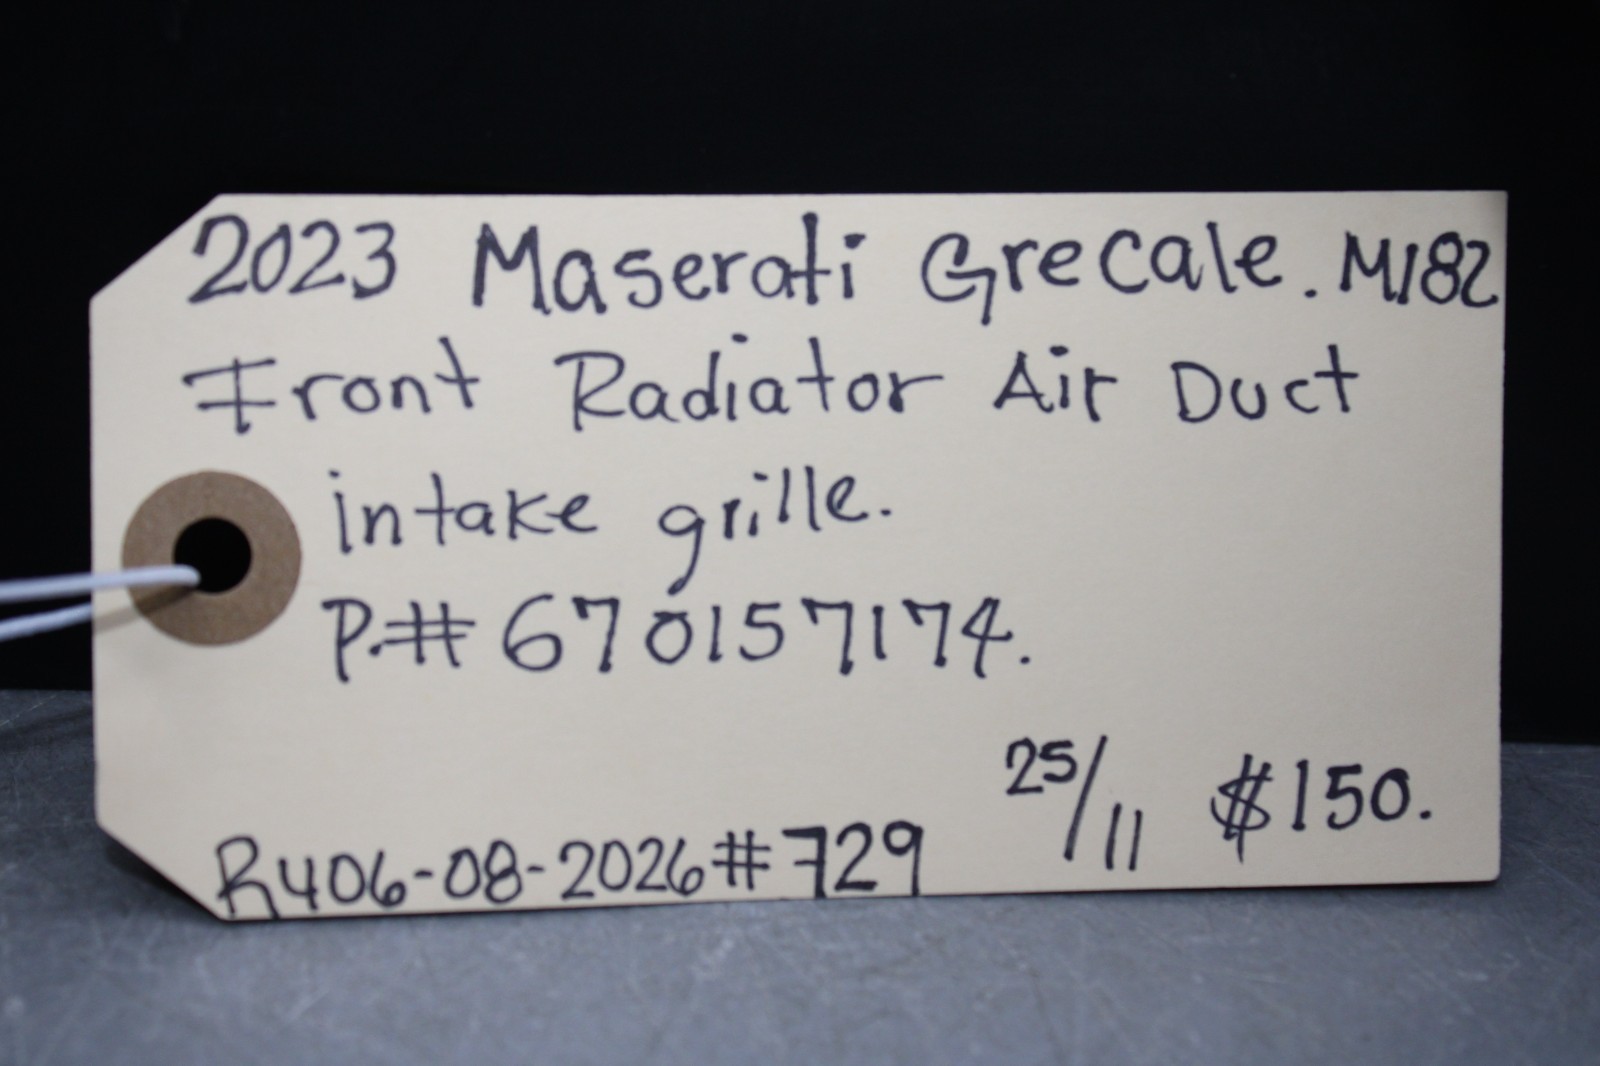 2023 Maserati Grecale. M182
Front Radiator Air Duct
intake grille.
P.# 670157174.
25/11 $150.
R406-08-2026#729